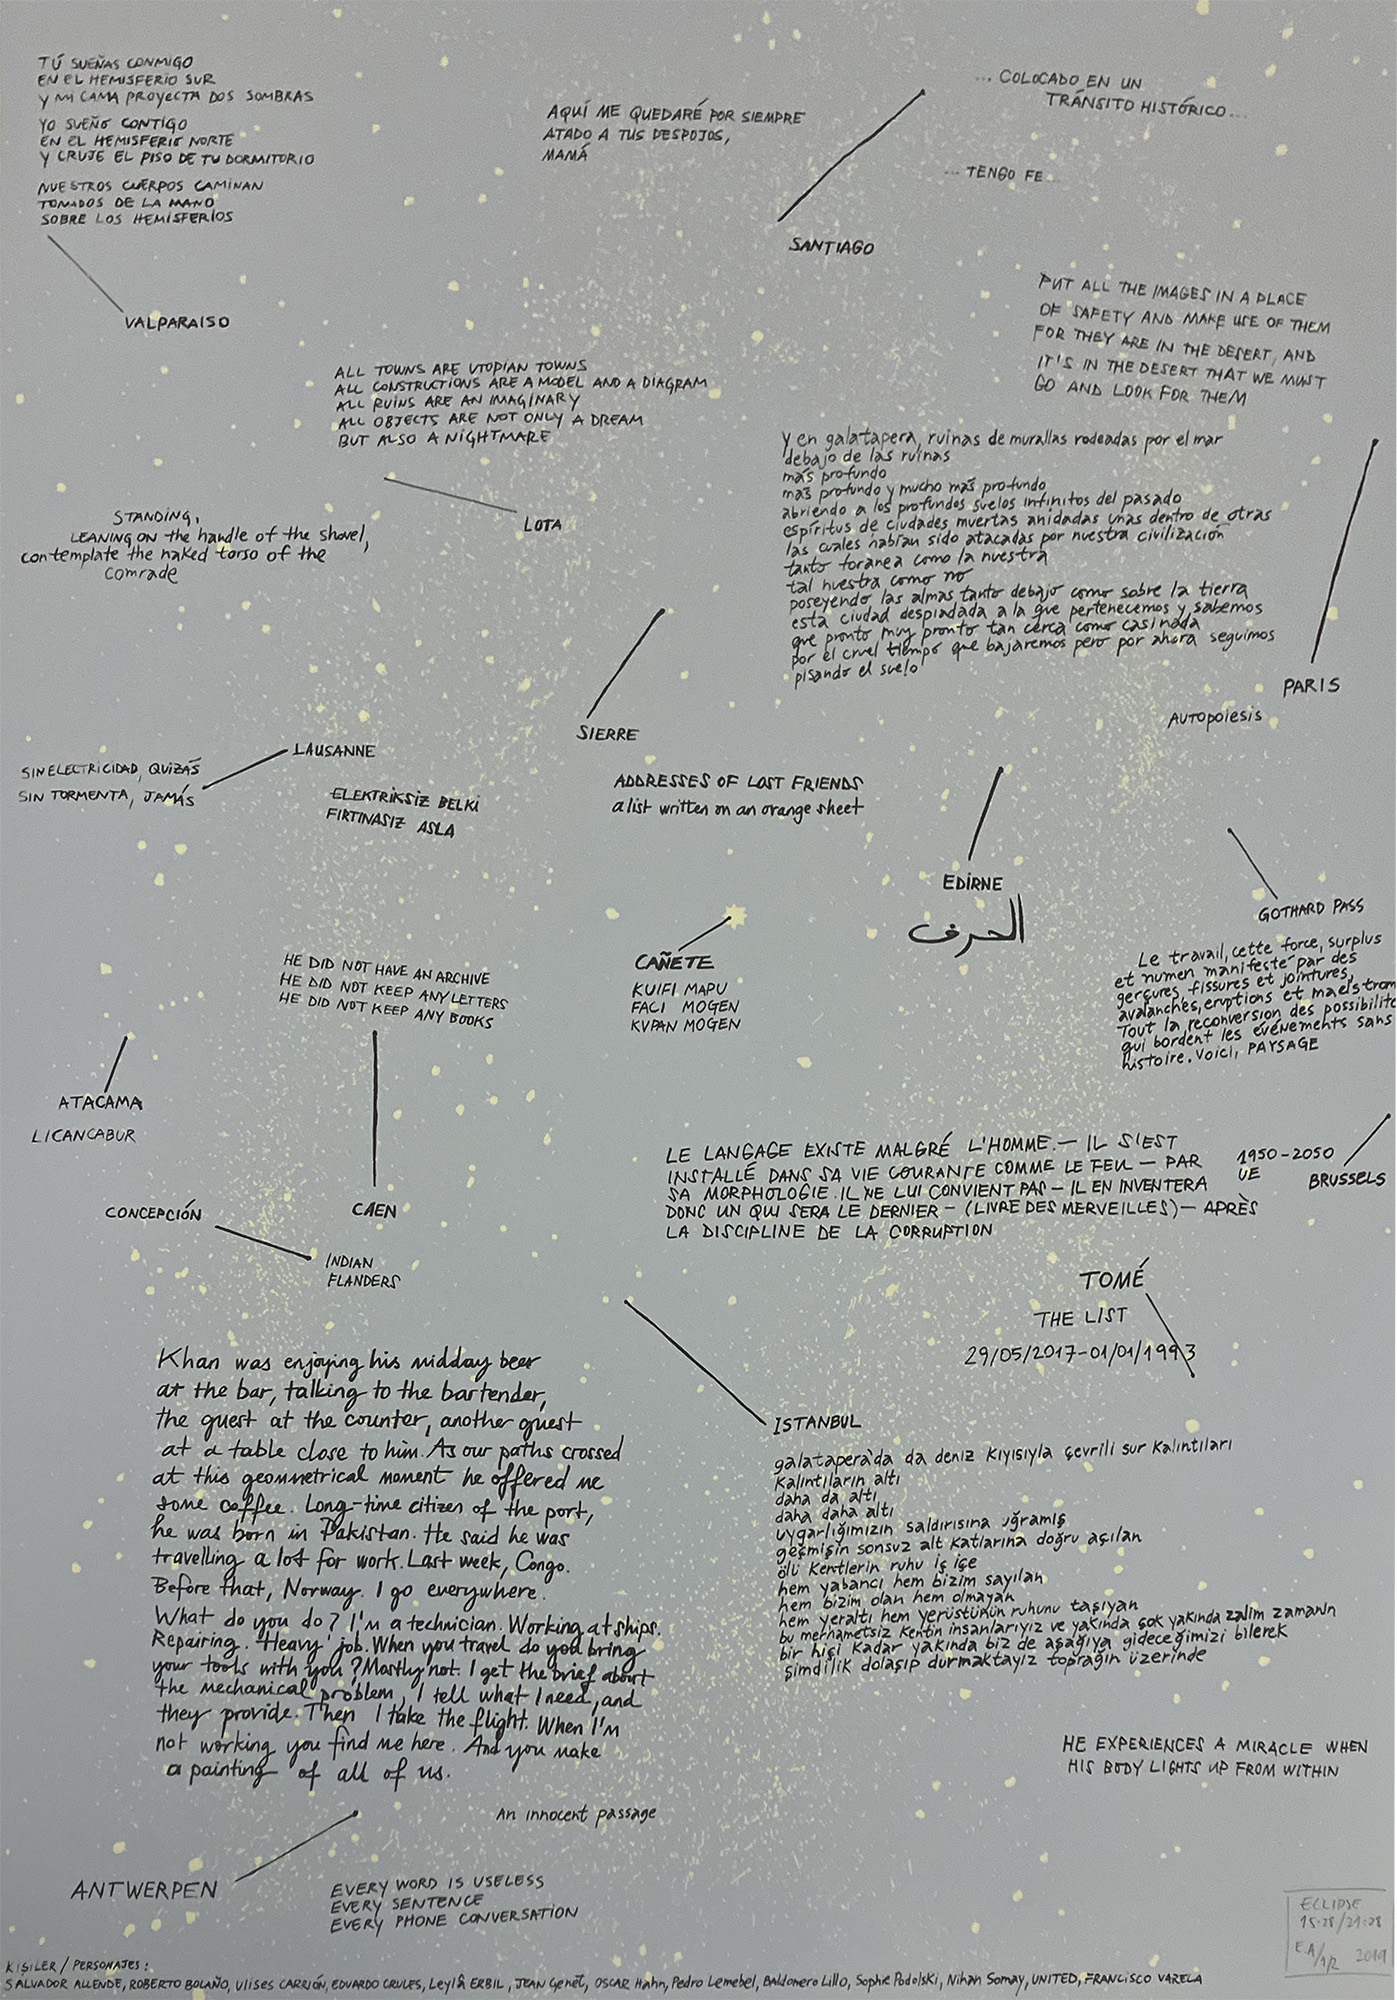 TÚ SUEÑAS CONMIGO
EN EL HEMISFERIO SUR
Y MI CAMA PROYECTA DOS SOMBRAS
YO SUEÑO CONTIGO
EN EL HEMISFERIO NORTE
Y CRUJE EL PISO DE TU DORMITORIO
NUESTROS CUERPOS CAMINAN
TOMADOS DE LA MANO
SOBRE LOS HEMISFERIOS
VALPARAISO
AQUÍ ME QUEDARÉ POR SIEMPRE
ATADO A TUS DESPOJOS,
MAMÁ
... COLOCADO EN UN
TRÁNSITO HISTÓRICO...
... TENGO FE...
SANTIAGO
PUT ALL THE IMAGES IN A PLACE
OF SAFETY AND MAKE USE OF THEM
FOR THEY ARE IN THE DESERT, AND
IT'S IN THE DESERT THAT WE MUST
GO AND LOOK FOR THEM
ALL TOWNS ARE UTOPIAN TOWNS
ALL CONSTRUCTIONS ARE A MODEL AND A DIAGRAM
ALL RUINS ARE AN IMAGINARY
ALL OBJECTS ARE NOT ONLY A DREAM
BUT ALSO A NIGHTMARE
LOTA
STANDING,
LEANING ON the handle of the shovel,
contemplate the naked torso of the
comrade
y en galatapera, ruinas de murallas rodeadas por el mar
debajo de las ruinas
más profundo
más profundo y mucho más profundo
abriendo a los profundos suelos infinitos del pasado
espíritus de ciudades muertas anidadas unas dentro de otras
las cuales habían sido atacadas por nuestra civilización
tanto foránea como la nuestra
tal nuestra como no
poseyendo las almas tanto debajo como sobre la tierra
esta ciudad despiadada a la que pertenecemos y sabemos
que pronto muy pronto tan cerca como casi nada
por el cruel tiempo que bajaremos pero por ahora seguimos
pisando el suelo
PARIS
Autopoiesis
SIERRE
LAUSANNE
SIN ELECTRICIDAD, QUIZÁS
SIN TORMENTA, JAMÁS
ELEKTRİKSİZ BELKİ
FIRTINASIZ ASLA
ADDRESSES OF LOST FRIENDS
a list written on an orange sheet
EDİRNE
الحرف
GOTHARD PASS
Le travail, cette force, surplus
et numen manifesté par des
gerçures, fissures et jointures,
avalanches, eruptions et maelstrom
Tout la reconversion des possibilité
qui bordent les événements sans
histoire. Voici, PAYSAGE
CAÑETE
KUIFI MAPU
FACI MOGEN
KVPAN MOGEN
HE DID NOT HAVE AN ARCHIVE
HE DID NOT KEEP ANY LETTERS
HE DID NOT KEEP ANY BOOKS
CAEN
ATACAMA
LICANCABUR
CONCEPCIÓN
INDIAN
FLANDERS
LE LANGAGE EXISTE MALGRÉ L'HOMME.— IL S'EST
INSTALLÉ DANS SA VIE COURANTE COMME LE FEU — PAR
SA MORPHOLOGIE. IL NE LUI CONVIENT PAS — IL EN INVENTERA
DONC UN QUI SERA LE DERNIER — (LIVRE DES MERVEILLES) — APRÈS
LA DISCIPLINE DE LA CORRUPTION
1950-2050
UE
BRUSSELS
TOMÉ
THE LIST
29/05/2017-01/01/1993
Khan was enjoying his midday beer
at the bar, talking to the bartender,
the guest at the counter, another guest
at a table close to him. As our paths crossed
at this geommetrical moment he offered me
some coffee. Long-time citizen of the port,
he was born in Pakistan. He said he was
travelling a lot for work. Last week, Congo.
Before that, Norway. I go everywhere.
What do you do? I'm a technician. Working at ships.
Repairing. 'Heavy' job. When you travel do you bring
your tools with you? Mostly not. I get the brief about
the mechanical problem, I tell what I need, and
they provide. Then I take the flight. When I'm
not working you find me here. And you make
a painting of all of us.
An innocent passage
ISTANBUL
galatapera'da da deniz kıyısıyla çevrili sur kalıntıları
kalıntıların altı
daha da altı
daha daha altı
uygarlığımızın saldırısına uğramış
geçmişin sonsuz alt katlarına doğru açılan
ölü kentlerin ruhu iç içe
hem yabancı hem bizim sayılan
hem bizim olan hem olmayan
hem yeraltı hem yerüstünün ruhunu taşıyan
bu merhametsiz kentin insanlarıyız ve yakında çok yakında zalim zamanın
bir hiçi kadar yakında biz de aşağıya gideceğimizi bilerek
şimdilik dolaşıp durmaktayız toprağın üzerinde
HE EXPERIENCES A MIRACLE WHEN
HIS BODY LIGHTS UP FROM WITHIN
ANTWERPEN
EVERY WORD IS USELESS
EVERY SENTENCE
EVERY PHONE CONVERSATION
ECLIPSE
15:28/21:28
E.A/1/2 2019
KİŞİLER / PERSONAJES:
SALVADOR ALLENDE, ROBERTO BOLAÑO, Ulises CARRIÓN, EDUARDO CRUCES, Leylâ ERBİL, JEAN Genêt, OSCAR Hahn, Pedro Lemebel, Baldomero Lillo, Sophie Podolski, Nihan Somay, UNITED, FRANCISCO VARELA